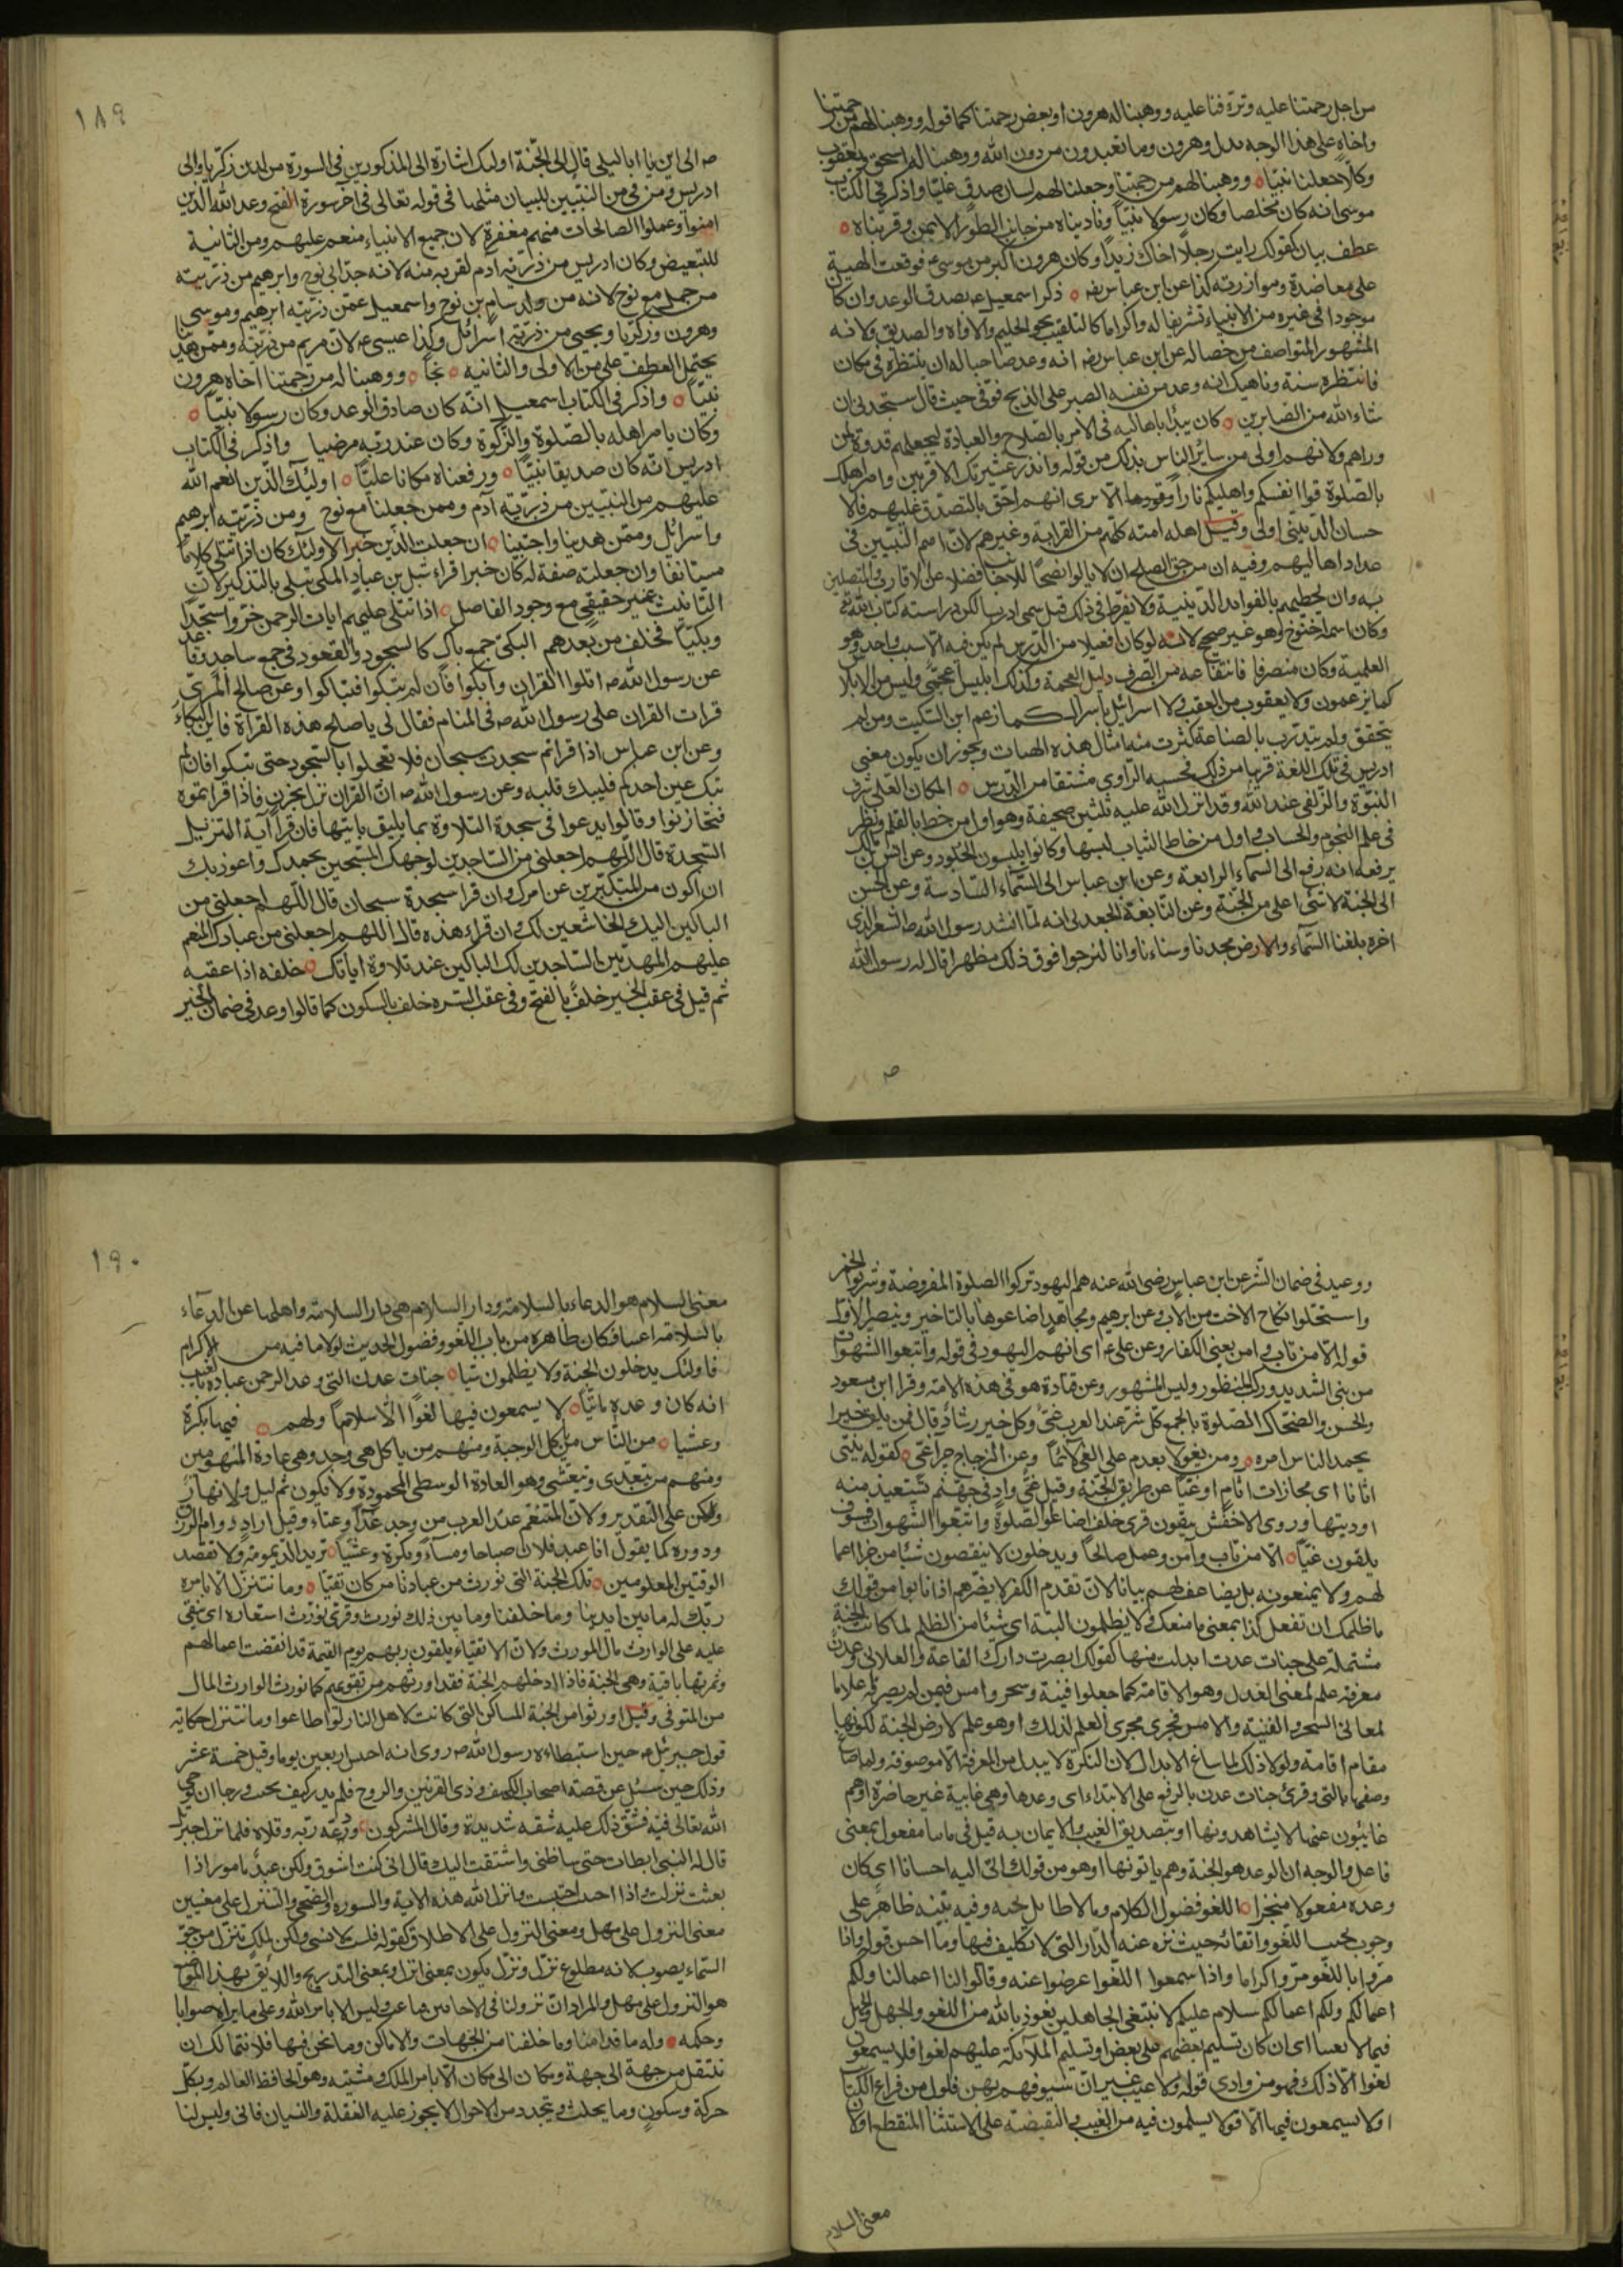 من اجل رحمتنا عليه وترؤفنا عليه ووهبنا له هرون او بعض رحمتنا كما قوله ووهبنا لهم من رحمتنا
واخاه على هذا الوجه بدل وهرون وما تعبدون من دون الله ووهبنا له اسحق ويعقوب
وكلا جعلنا نبيا ووهبنا لهم من رحمتنا وجعلنا لهم لسان صدق عليا واذكر في الكتاب
موسى انه كان مخلصا وكان رسولا نبيا وناديناه من جانب الطور الايمن وقربناه
عطف بيان كقولك رايت رجلا اخاك زيدا وكان هرون اكبر من موسى ع فوقعت الهبة
على معاضدة وموازرته كذا عن ابن عباس رضه ذكر اسمعيل ع بصدق الوعد وان كان
موجودا في غيره من الانبياء تشريفا له واكراما كالتلقيب بنحو الحليم والاواه والصديق ولانه
المشهور المتواصف من خصاله عن ابن عباس رضه انه وعد صاحبا له ان ينتظره في مكان
فانتظره سنة وناهيك انه وعد من نفسه الصبر على الذبح فوفى حيث قال ستجدني ان
شاء الله من الصابرين كان يبدا باهاليه في الامر بالصلاح والعبادة ليجعلهم قدوة لمن
وراهم ولانهم اولى من سائر الناس بذلك من قوله وانذر عشيرتك الاقربين وامر اهلك
بالصلوة قوا انفسكم واهليكم نارا وقودها الا ترى انهم احق بالتصدق عليهم فالا
حسان الديني اولى وقيل اهله امته كلهم من القرابة وغيرهم لان امم النبيين في
عداد اهاليهم وفيه ان من حق الصالح ان لا يالوا نصحا للاجانب فضلا عن الاقارب والمتصلين
به وان يحظيهم بالفوائد الدينية ولا يفرط في ذلك قيل سمي ادريسا لكثرة دراسته كتاب الله تع
وكان اسمه اخنوخ وهو غير صحيح لانه لو كان افعيلا من الدرس لم يكن فيه الا سبب واحد وهو
العلمية وكان منصرفا فانتفاعه من الصرف دليل العجمة وكذلك ابليس عجمي وليس من الابلاس
كما يزعمون ولا يعقوب من العقب ولا اسرائيل باسرال كما زعم ابن السكيت ومن لم
يتحقق ولم يتدرب بالصناعة كثرت منه امثال هذه الهنات ويجوز ان يكون معنى
ادريس في تلك اللغة قريبا من ذلك فحسبه الراوي مشتقا من الدرس المكان العلي شرف
النبوة والزلفى عند الله وقد انزل الله عليه ثلثين صحيفة وهو اول من خط بالقلم ونظر
في علم النجوم والحساب واول من خاط الثياب لبسها وكانوا يلبسون الجلود وعن انس بن مالك
يرفعه انه رفع الى السماء الرابعة وعن ابن عباس الى السماء السادسة وعن الحسن
الى الجنة لا شئ اعلى من الجنة وعن النابغة الجعدي انه لما انشد رسول الله ص الشعر الذي
اخره بلغنا السماء والارض مجدنا وسناءنا وانا لنرجوا فوق ذلك مظهرا قال له رسول الله
ص
١٨٩
ص الى اين يا ابا ليلى قال الى الجنة اولئك اشارة الى المذكورين في السورة من لدن زكريا والى
ادريس ومن في من النبيين للبيان مثلها في قوله تعالى في اخر سورة الفتح وعد الله الذين
امنوا وعملوا الصالحات منهم مغفرة لان جميع الانبياء منعم عليهم ومن الثانية
للتبعيض وكان ادريس من ذرية آدم لقربه منه لانه جد ابي نوح وابرهيم من ذرية
من حمل مع نوح لانه من ولد سام بن نوح واسمعيل عمن ذرية ابرهيم وموسى
وهرون وزكريا ويحيى من ذرية اسرائل وكذا عيسى ع لان مريم من ذريته وممن هدينا
يحتمل العطف على من الاولى والثانية نجيا ووهبنا له من رحمتنا اخاه هرون
نبيا واذكر في الكتاب اسمعيل انه كان صادق الوعد وكان رسولا نبيا
وكان يامر اهله بالصلوة والزكوة وكان عند ربه مرضيا واذكر في الكتاب
ادريس انه كان صديقا نبيا ورفعناه مكانا عليا اولئك الذين انعم الله
عليهم من النبيين من ذرية آدم وممن جعلنا مع نوح ومن ذرية ابرهيم
واسرائل وممن هدينا واجتبينا ان جعلت الذين خبرا لاولئك كان اذا تتلى كلاما
مستانفا وان جعلته صفة له كان خبرا قراء شبل بن عباد المكي يتلى بالتذكير لان
التانيث غير حقيقي مع وجود الفاصل اذا تتلى عليهم ايات الرحمن خروا سجدا
وبكيا فخلف من بعدهم البكي جمع باك كالسجود والقعود في جمع ساجد وقاعد
عن رسول الله ص اتلوا القران وابكوا فان لم تبكوا فتباكوا وعن صالح المري
قرات القران على رسول الله ص في المنام فقال لي يا صالح هذه القراءة فاين البكاء
وعن ابن عباس اذا قراتم سجدت سبحان فلا تعجلوا بالسجود حتى تبكوا فان لم
تبك عين احدكم فليبك قلبه وعن رسول الله ص ان القران نزل بحزن فاذا قراتموه
فتحازنوا وقالوا يدعوا في سجدة التلاوة بما يليق بايتها فان قرا آية التنزيل
السجدة قال اللهم اجعلني من الساجدين لوجهك المسبحين بحمدك واعوذ بك
ان اكون من المتكبرين عن امرك وان قرا سجدة سبحان قال اللهم اجعلني من
الباكين اليك الخاشعين لك وان قراء هذه قال اللهم اجعلني من عبادك المنعم
عليهم المهديين الساجدين لك الباكين عند تلاوة اياتك خلفه اذا عقبه
ثم قيل في عقب الخير خلف بالفتح وفي عقب الشره خلف بالسكون كما قالوا وعد في ضمان الخير
ووعيد في ضمان الشر عن ابن عباس رضي الله عنه هم اليهود تركوا الصلوة المفروضة وشربوا الخمر
واستحلوا نكاح الاخت من الاب وعن ابرهيم ومجاهد اضاعوها بالتاخير وينصر الاول
قوله الا من تاب وامن يعني الكفار وعن علي ع اي انهم اليهود في قوله واتبعوا الشهوات
من بنى الشديد وركب المنظور ولبس المشهور وعن قتادة هو في هذه الامة وقرا ابن مسعود
والحسن والضحاك الصلوة بالجمع كل شر عند العرب غي وكل خير رشاد قال فمن يلق خيرا
يحمد الناس امره ومن يغو لا يعدم على الغي لائما وعن الزجاج جزا غي كقوله يلق
اثاما اي مجازات اثام او غيا عن طريق الجنة وقيل غي واد في جهنم تستعيذ منه
اوديتها وروى الاخفش يلقون قرى خلف اضاعوا الصلوة واتبعوا الشهوات فسوف
يلقون غيا الا من تاب وآمن وعمل صالحا ويدخلون لا ينقصون شئا من جزا اعما
لهم ولا يمنعونه بل يضاعف لهم بيانا لان تقدم الكفر لا يضرهم اذا تابوا من قولك
ما ظلمك ان تفعل كذا بمعنى ما منعك ولا يظلمون البتة اي شيئا من الظلم لما كانت الجنة
مشتملة على جنات عدت ابدلت منها كقولك ابصرت دارك القاعة والعلالي وعدن
معرفة علم لمعنى العدل وهو الاقامة كما جعلوا فينة وسحر وامس فيمن لم يصرفه علاما
لمعاني السحر والفنية والامس فجرى مجرى العلم لذلك او هو علم لارض الجنة لكونها
مقام اقامة ولولا ذلك لما ساغ الابدال لان النكرة لا يبدل من المعرفة الا موصوفة ولما صاغ
وصفها بالتي وقرئ جنات عدن بالرفع على الابتداء اي وعدها وهي غايبة غير حاضرة او هم
غائبون عنها لا يشاهدونها او بتصديق الغيب والايمان به قيل في ماتيا مفعول بمعنى
فاعل والوجه ان الوعد هو الجنة وهم ياتونها او هو من قولك اتى اليه احسانا اي كان
وعده مفعولا منجزا اللغو فضول الكلام وما لا طايل تحته وفيه تنبيه ظاهر على
وجوب تجنب اللغو واتقائه حيث نزه عنه الدار التي لا تكليف فيها وما احسن قوله واذا
مروا باللغو مروا كراما واذا سمعوا اللغو اعرضوا عنه وقالوا لنا اعمالنا ولكم
اعمالكم ولكم اعمالكم سلام عليكم لا نبتغي الجاهلين نعوذ بالله من اللغو والجهل والخبل
فيما لا يعنينا اي ان كان تسليم بعضهم على بعض او تسليم الملائكة عليهم لغوا فلا يسمعون
لغوا الا ذلك فهو من وادي قوله ولا عيب غير ان سيوفهم بهن فلول من قراع الكتا
اولا يسمعون فيها الا قولا يسلمون فيه من الغيب والنقيضة على الاستثنا المنقطع او لان
معنى السلام
١٩٠
معنى السلام هو الدعاء بالسلامة ودار السلام هي دار السلامة واهلها عن الدعاء
بالسلامة اغنيا فكان ظاهره من باب اللغو وفضول الحديث لولا ما فيه من الاكرام
فاولئك يدخلون الجنة ولا يظلمون شيا جنات عدن التي وعد الرحمن عباده بالغيب
انه كان وعده ماتيا لا يسمعون فيها لغوا الا سلاما ولهم فيها بكرة
وعشيا من الناس من ياكل الوجبة ومنهم من ياكل متى وجد وهي عادة المنهومين
ومنهم من يتغدى ويتعشى وهو العادة الوسطى المحمودة ولا يكون ثم ليل ولا نهار
ولكن على التقدير ولان المتنعم عند العرب من وجد غداء وعشاء وقيل اراد دوام الرزق
ودوره كما يقول انا عبد فلان صباحا ومساء وبكرة وعشيا تريد الديمومة ولا تقصد
الوقتين المعلومين تلك الجنة التي نورث من عبادنا من كان تقيا وما نتنزل الا بامره
ربك له ما بين ايدينا وما خلفنا وما بين ذلك نورث وقرئ نورث استعارة اي نبقي
عليه على الوارث مال المورث ولان الاتقياء يلقون ربهم يوم القيمة قد انقضت اعمالهم
وثمرتها باقية وهي الجنة فاذا ادخلهم الجنة فقد اورثهم من تقويهم كما نورث الوارث المال
من المتوفى وقيل اورثوا من الجنة المساكن التي كانت لاهل النار لو اطاعوا وما نتنزل حكاية
قول جبرئيل ص حين استبطاه رسول الله ص روى انه احتبس اربعين يوما وقيل خمسة عشر
وذلك حين سئل عن قصة اصحاب الكهف وذي القرنين والروح فلم يدر كيف يجيب ورجا ان يوحي
الله تعالى فيه فشق ذلك عليه شقة شديدة وقال المشركون ودعه ربه وقلاه فلما نزل جبرئيل
قال له النبي ابطات حتى ساء ظني واشتقت اليك قال اني كنت اشوق ولكن عبد مامور اذا
بعثت نزلت واذا احتبست احتبست وانزل الله هذه الاية والسورة والضحى والتنزل على معنيين
معنى النزول على مهل ومعنى النزول على الاطلاق كقوله فلست لانسي ولكن لملك تنزل من جو
السماء يصوب لانه مطاوع نزل ونزل يكون بمعنى انزل وبمعنى التدريج واللايق بهذا الموضع
هو النزول على مهل والمراد ان نزولنا في الاحايين ليس الا بامر الله وعلى ما يراه صوابا
وحكمه وله ما قدامنا وما خلفنا من الجهات والاماكن وما نحن فيها فلا نتمالك ان
ننتقل من جهة الى جهة ومكان الى مكان الا بامر الملك ومشيته وهو الحافظ العالم وبكل
حركة وسكون وما يحدث ويتجدد من الاحوال لا يجوز عليه الغفلة والنسيان فانى وليس لنا